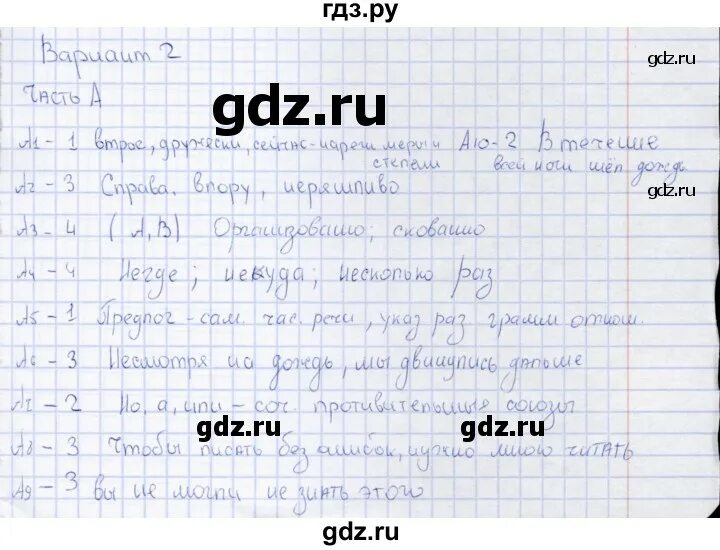 гдз.ру
Вариант 2
gdz.ru
Часть А
gdz.ru
А1 - 1 втрое, дружески, сейчас - нареч меры и степени
А10 - 2 В течение всей ночи шёл дождь
А2 - 3 Справа, впору, неряшливо
gdz.ru
А3 - 4 (А, В) Организованно; скованно
А4 - 4 Негде; некуда; несколько раз
gdz.ru
А5 - 1 Предлог - сам. час. речи, указ раз грамм отнош.
А6 - 3 Несмотря на дождь, мы двинулись дальше
А7 - 2 Но, а, или - соч. противительные союзы
gdz.ru
gdz.ru
А8 - 3 Чтобы писать без ошибок, нужно много читать
А9 - 3 вы не могли не знать этого
gdz.ru